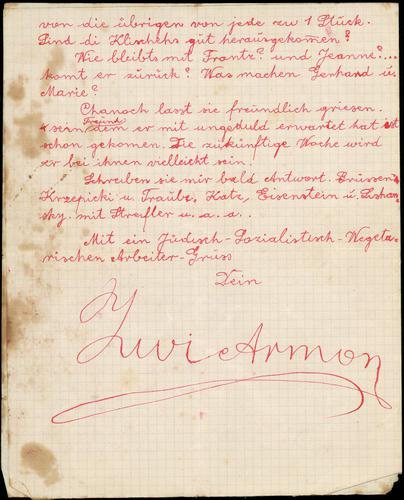 von die übrigen von jede zu 1 Stück.
Sind di Klischehs gut herausgekomen?
Wie bleibts mit Frantz? und Jeanne?...
komt er zurück? Was machen Gerhand u.
Marie?
Chanoch lasst sie freundlich griesen.
Freund
sein dem er mit ungeduld erwartet hat ist
schon gekomen. Die zukünftige Woche wird
er bei ihnen vielleicht sein.
Schreiben sie mir bald Antwort. Grüssen
Krzepicki u. Traube, Katz, Eisenstein u. Lishan-
sky. mit Streifler u. a. a..
Mit ein Jüdisch-Sozialistisch-Wegeta-
rischen Arbeiter-Gruss
Dein
Zwi Armon